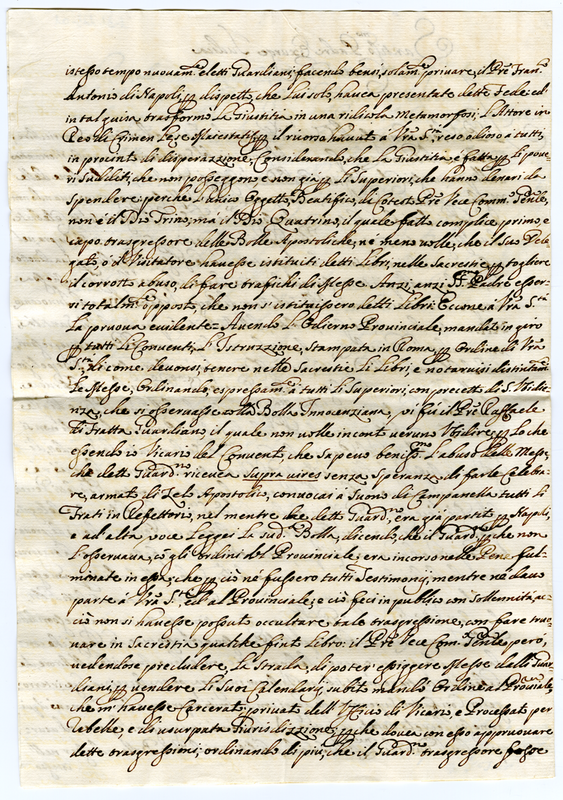 istesso tempo nuovam.te eletti Guardiani; facendo bensi, solam.te privare, il P.re Fran.co
Antonio di Napoli, p dispetto, che lui solo, havea presentate dette Fede: ed
in tal guisa trasformò La Giustitia in una ridicola Metamorfosi: L'Attore in
Reo di Crimen Lesę Maiestatis, p il ricorso havuto à Vrã S.tà, reso odioso à tutti,
in procinto di disperazzione, Considerando, che La Giustitia è fatta p li pove-
ri sudditi, che non posseggono, e non già p li Superiori, che hanno denari da
spendere; perche L'unico Oggetto, Beatifico, di Cotesto P.re Vece Comm.o Gñle,
non è il Dio Trino, ma il Dio Quatrino, il quale fatto complice primo, e
capo trasgressore delle Bolle Apostoliche, ne meno volle, che il suo Dele-
gato, ò Visitatore havesse istituiti detti Libri, nelle Sacrestie, p togliere
il corrotto abuso, di fare trafichi di Messe. Anzi, anzi P.mo Padre esser-
vi totalm.te opposto, che non s'istituissero detti Libri: Eccone à Vrã S.tà
La pruova evidente: Avendo L'Odierno Provinciale, mandato in giro
p tutti li Conventi, L'Istruzzione, stampata in Roma, p Ordine di Vrã
S.tà, di come devonsi, tenere nelle Sacrestie Li Libri, e notarvisi distintam.te
Le Messe, Ordinando, espressam.te à tutti li Superiori, con precetto di S. Ubidi-
enza, che si osservasse detta Bolla Innocenziana, vi fù il P.re Raffaele
di Fratta Guardiano, il quale non volle in conto veruno Ubidire, p Lo che
essendo io Vicario del Convento, che sapevo beniss.mo L'abuso delle Messe,
che detto Guard.no riceveva supra vires senza Speranza di farle Celebra-
re, armato di Zelo Apostolico, convocai à suono di Campanella tutti li
Frati in Refettorio, nel mentre che detto Guard.no era già partito p Napoli,
e ad alta voce Leggei La sud.a Bolla, dicendo, che il Guard.no, p che non
L'osservava, cõ gli ordini del Provinciale, era incorso nelle Pene ful-
minate in essa; che p ciò nè fussero tutti Testimonij, mentre nè davo
parte à Vrã S.tà ed al Provinciale; e ciò feci in publico con sollennità, ac-
ciò non si havesse possuto occultare tale trasgressione, con fare tro-
vare in Sacrestia qualche finto Libro: il P.re Vece Com.o Gñle però,
vedendose precludere La Strada, di poter essiggere Messe dalli Guar-
diani, p vendere Li Suoi Calendarij, subito mandò Ordine al Prov.nciale,
che m'havesse Carcerato, privato dell'Ufficio di Vicario, e Processato per
ribelle, e di usurpata Giurisdizzione, p che dovea con esso appruovare
dette trasgressioni; ordinando di più, che il Guard.no trasgressore fosse